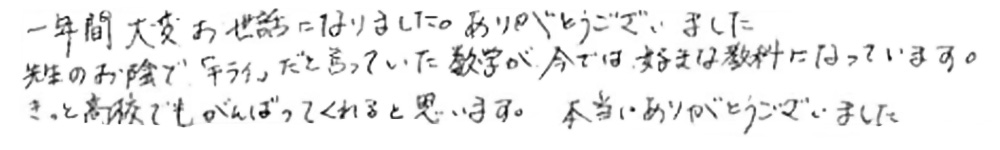 一年間大変お世話になりました。ありがとうございました
先生のお陰で「キライ」だと言っていた数学が今では好きな教科になっています。
きっと高校でもがんばってくれると思います。 本当にありがとうございました